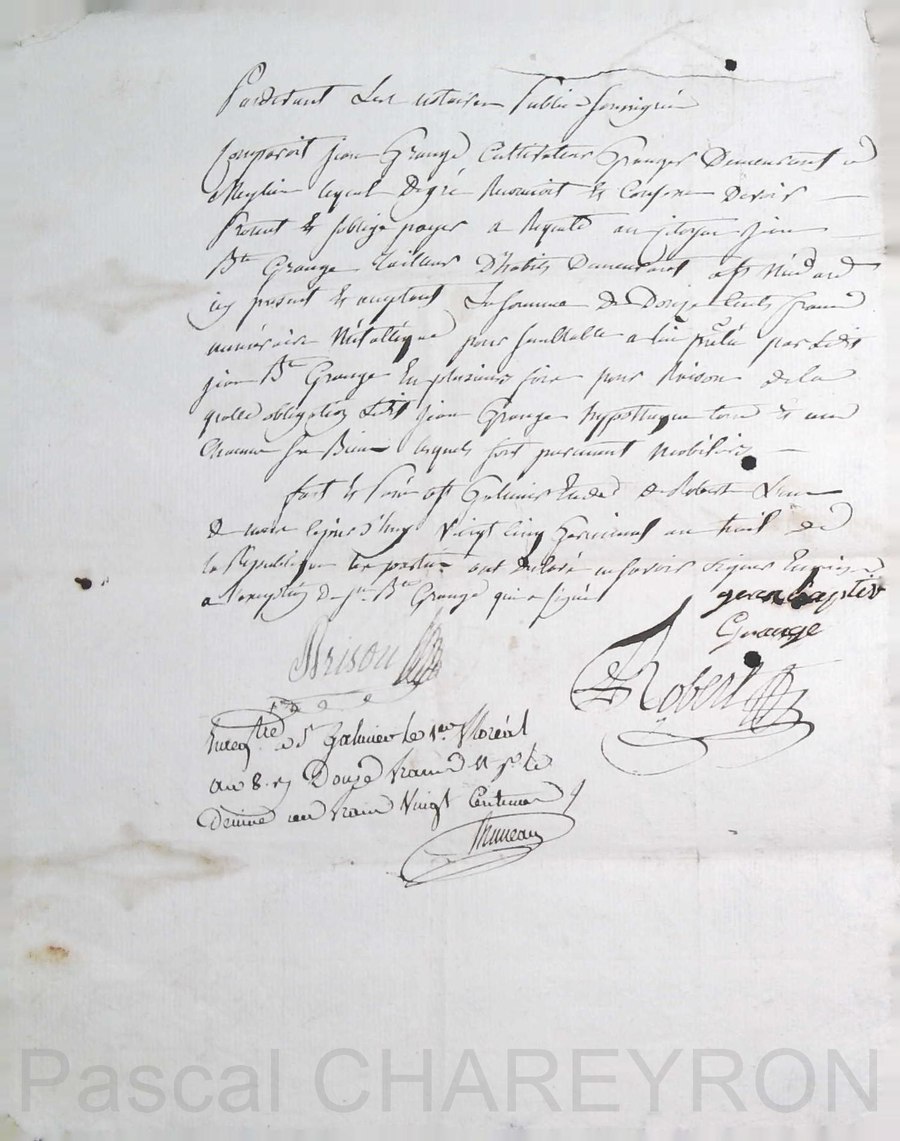 Pardevant Les notaires Public Soussignés
Comparoit Jean Grange Cultivateur Granger Demeurant a
Meylieu lequel De gré Reconnoit & Confesse Devoir
Promet & s'oblige payer a Requête au Citoyen Jean
Bte Grange tailleur D'habits Demeurant a St Médard
icy present & acceptant La somme De Douze Cents francs
numéraire Métallique pour semblable a lui prêté par Ledit
Jean Bte Grange En plusieurs fois pour Raison de la
quelle obligation Ledit Jean Grange hypothéque tous & un
Chacun Ses Biens lesquels sont purement Mobiliers
fait & Passé a St Galmier Etude de Robert L'un
De nous le jour d'huy Vingt Cinq Germinal an huit de
la République Les parties ont Declaré ne savoir signer Enquises
a l'exception de Jn Bte Grange qui a signé
jean baptiste
Grange
Brison
Robert
Enregtré a St Galmier le 1er floréal
an 8. Reçu Douze francs
Dixime un franc Vingt Centimes
Bruneau
Pascal CHAREYRON